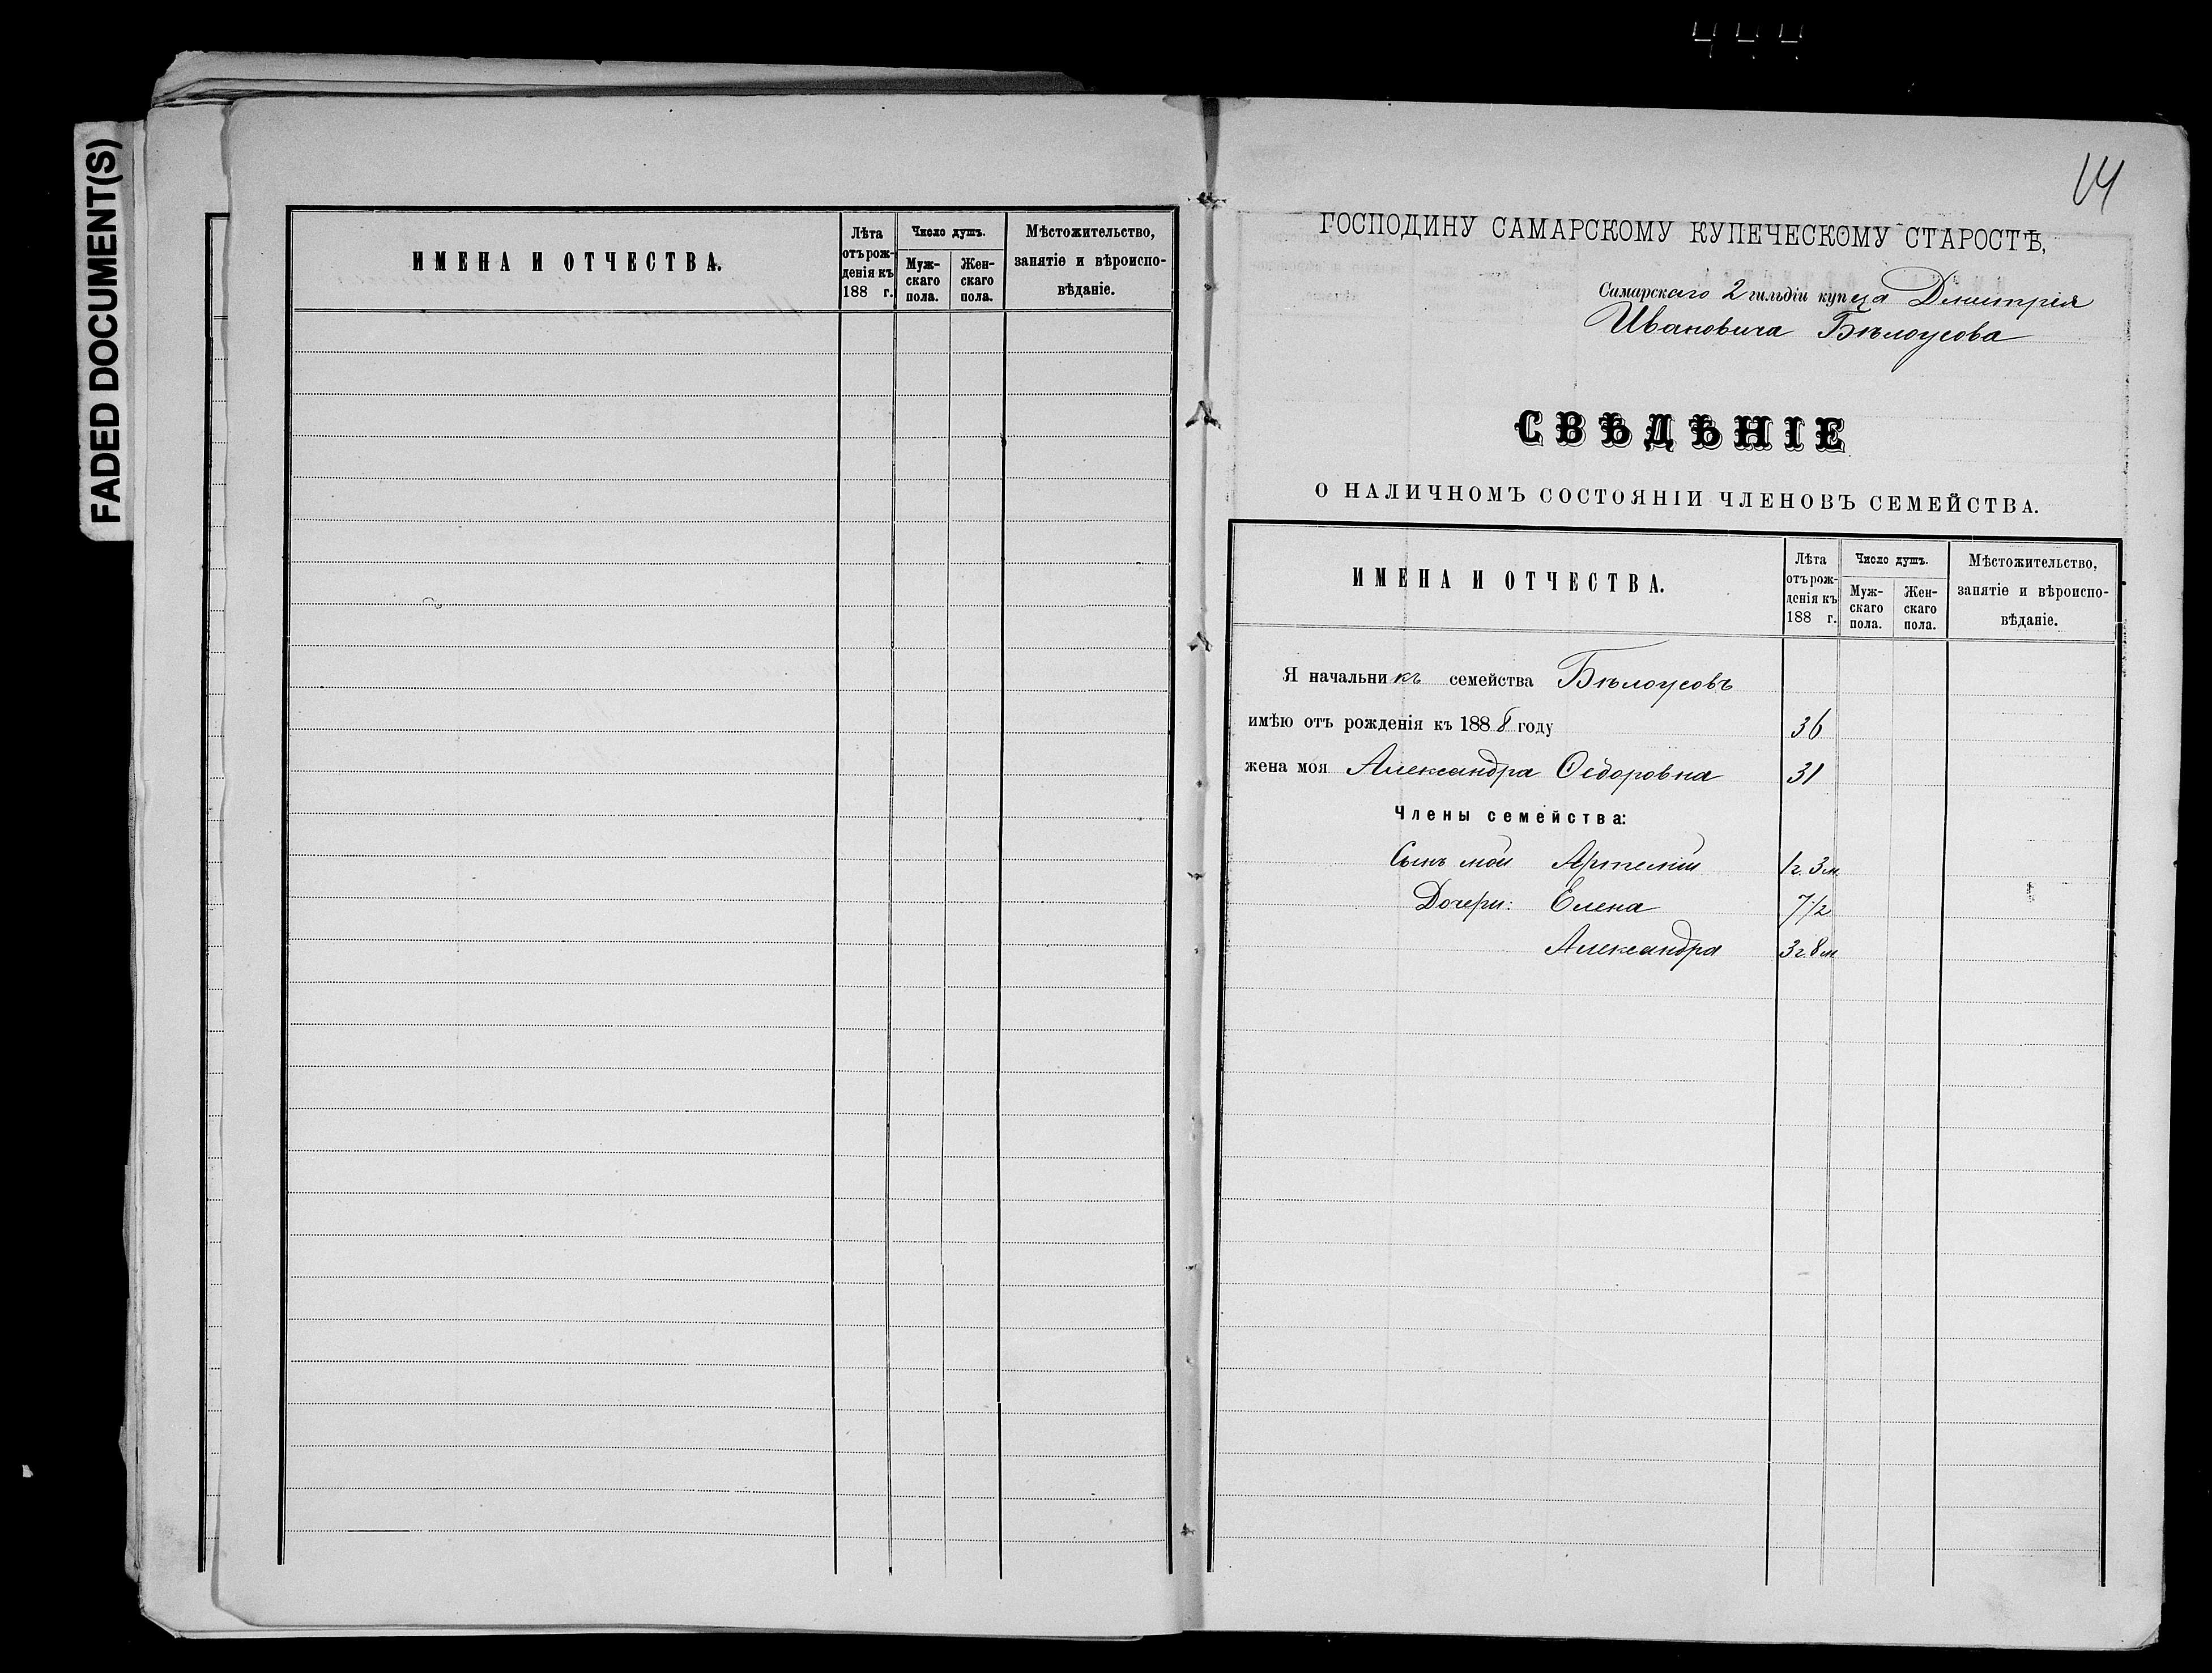 FADED DOCUMENT(S)
ИМЕНА И ОТЧЕСТВА.
Лѣта
отъ рож-
денія къ
188 г.
Число душъ.
Муж-
скаго
пола.
Жен-
скаго
пола.
Мѣстожительство,
занятіе и вѣроиспо-
вѣданіе.
14
ГОСПОДИНУ САМАРСКОМУ КУПЕЧЕСКОМУ СТАРОСТѢ,
Самарскаго 2 гильдіи купца Дмитрія
Ивановича Бѣлоусова
СВѢДѢНІЕ
О НАЛИЧНОМЪ СОСТОЯНІИ ЧЛЕНОВЪ СЕМЕЙСТВА.
ИМЕНА И ОТЧЕСТВА.
Лѣта
отъ рож-
денія къ
188 г.
Число душъ.
Муж-
скаго
пола.
Жен-
скаго
пола.
Мѣстожительство,
занятіе и вѣроиспо-
вѣданіе.
Я начальникъ семейства Бѣлоусовъ
имѣю отъ рожденія къ 1888 году 36
жена моя Александра Ѳедоровна 31
Члены семейства:
Сынъ мой Артемій 1 г. 3 м.
Дочери: Елена 7 1/2
Александра 3 г. 8 м.